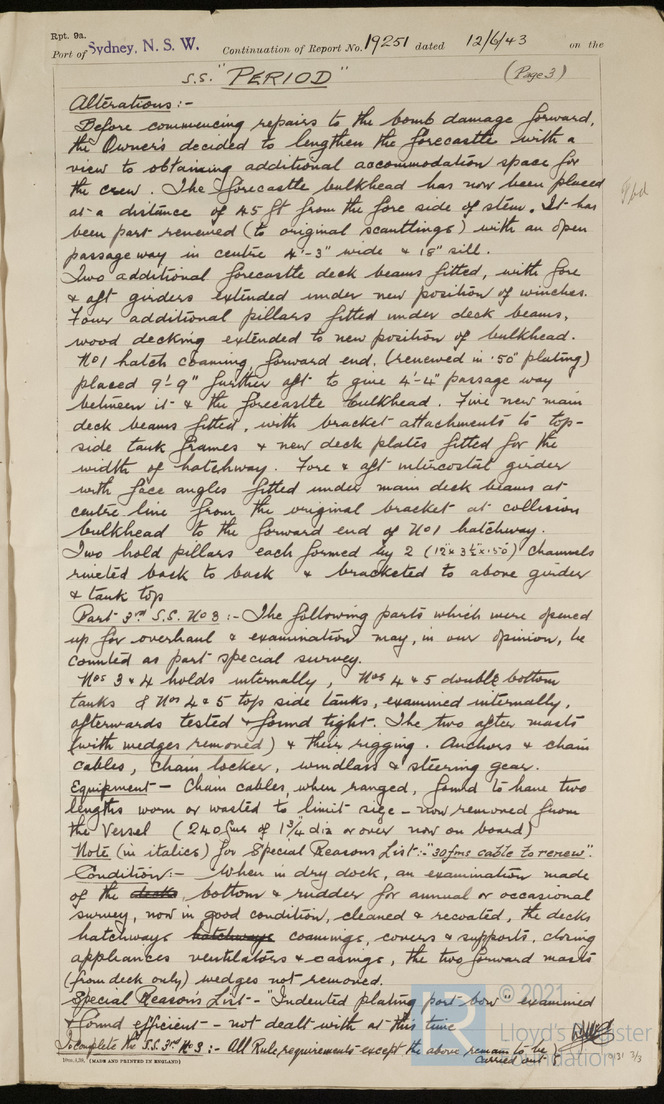 Rpt. 9a.
Port of Sydney, N. S. W. Continuation of Report No. 19251 dated 12/6/43 on the
S.S. "PERIOD" (Page 3)
Alterations :-
Before commencing repairs to the bomb damage forward,
the Owners decided to lengthen the forecastle with a
view to obtaining additional accommodation space for
the crew. The forecastle bulkhead has now been placed
at a distance of 45 ft from the fore side of stem. It has
been part renewed (to original scantlings) with an open
passageway in centre 4'-3" wide & 18" sill.
Two additional forecastle deck beams fitted, with fore
& aft girders extended under new position of winches.
Four additional pillars fitted under deck beams,
wood decking extended to new position of bulkhead.
No 1 hatch coaming forward end, (renewed in .50" plating)
placed 9'-9" further aft to give 4'-4" passage way
between it & the forecastle bulkhead. Five new main
deck beams fitted, with bracket attachments to top-
side tank frames & new deck plates fitted for the
width of hatchway. Fore & aft intercostal girder
with face angles fitted under main deck beams at
centre line from the original bracket at collision
bulkhead to the forward end of No 1 hatchway.
Two hold pillars each formed by 2 (12"x 3½"x .50") channels
riveted back to back & bracketed to above girder
& tank top
Part 3rd S.S. No 3 :- The following parts which were opened
up for overhaul & examination may, in our opinion, be
counted as part special survey.
Nos 3 & 4 holds internally, Nos 4 & 5 double bottom
tanks & Nos 4 & 5 top side tanks, examined internally,
afterwards tested & found tight. The two after masts
(with wedges removed) & their rigging. Anchors & chain
cables, chain locker, windlass & steering gear.
Equipment - Chain cables, when ranged, found to have two
lengths worn or wasted to limit size - now removed from
the Vessel (240 fms of 1¾ dia or over now on board)
Note (in italics) for Special Reasons List :- "30 fms cable to renew".
Condition :- When in dry dock, an examination made
of the decks, bottom & rudder for annual or occasional
survey, now in good condition, cleaned & recoated, the decks
hatchways hatchways coamings, covers & supports, closing
appliances ventilators & casings, the two forward masts
(from deck only) wedges not removed.
Special Reasons List - "Indented plating port bow" examined
& found efficient - not dealt with at this time
To complete the S.S. 3rd No 3 :- All Rule requirements except the above remain to be
carried out
10m.4.39. (MADE AND PRINTED IN ENGLAND)
© 2021
LR
Lloyd's Register
Foundation